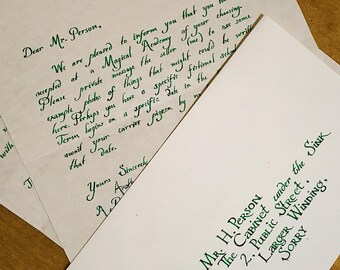 Dear Mr. Person,
We are pleased to inform you that you
accepted at a Magical Academy of your choosing.
Please private message the seller (me) to see some
example photos of things that might could be written
here. Perhaps you have a specific fictional school
Term begins on a specific date in the
await your carrier pigeon by no
that date.
Yours Sincerely
Mr H. Person
The Cabinet under the Sink
2. Public Street,
Larger Winding,
Sorry